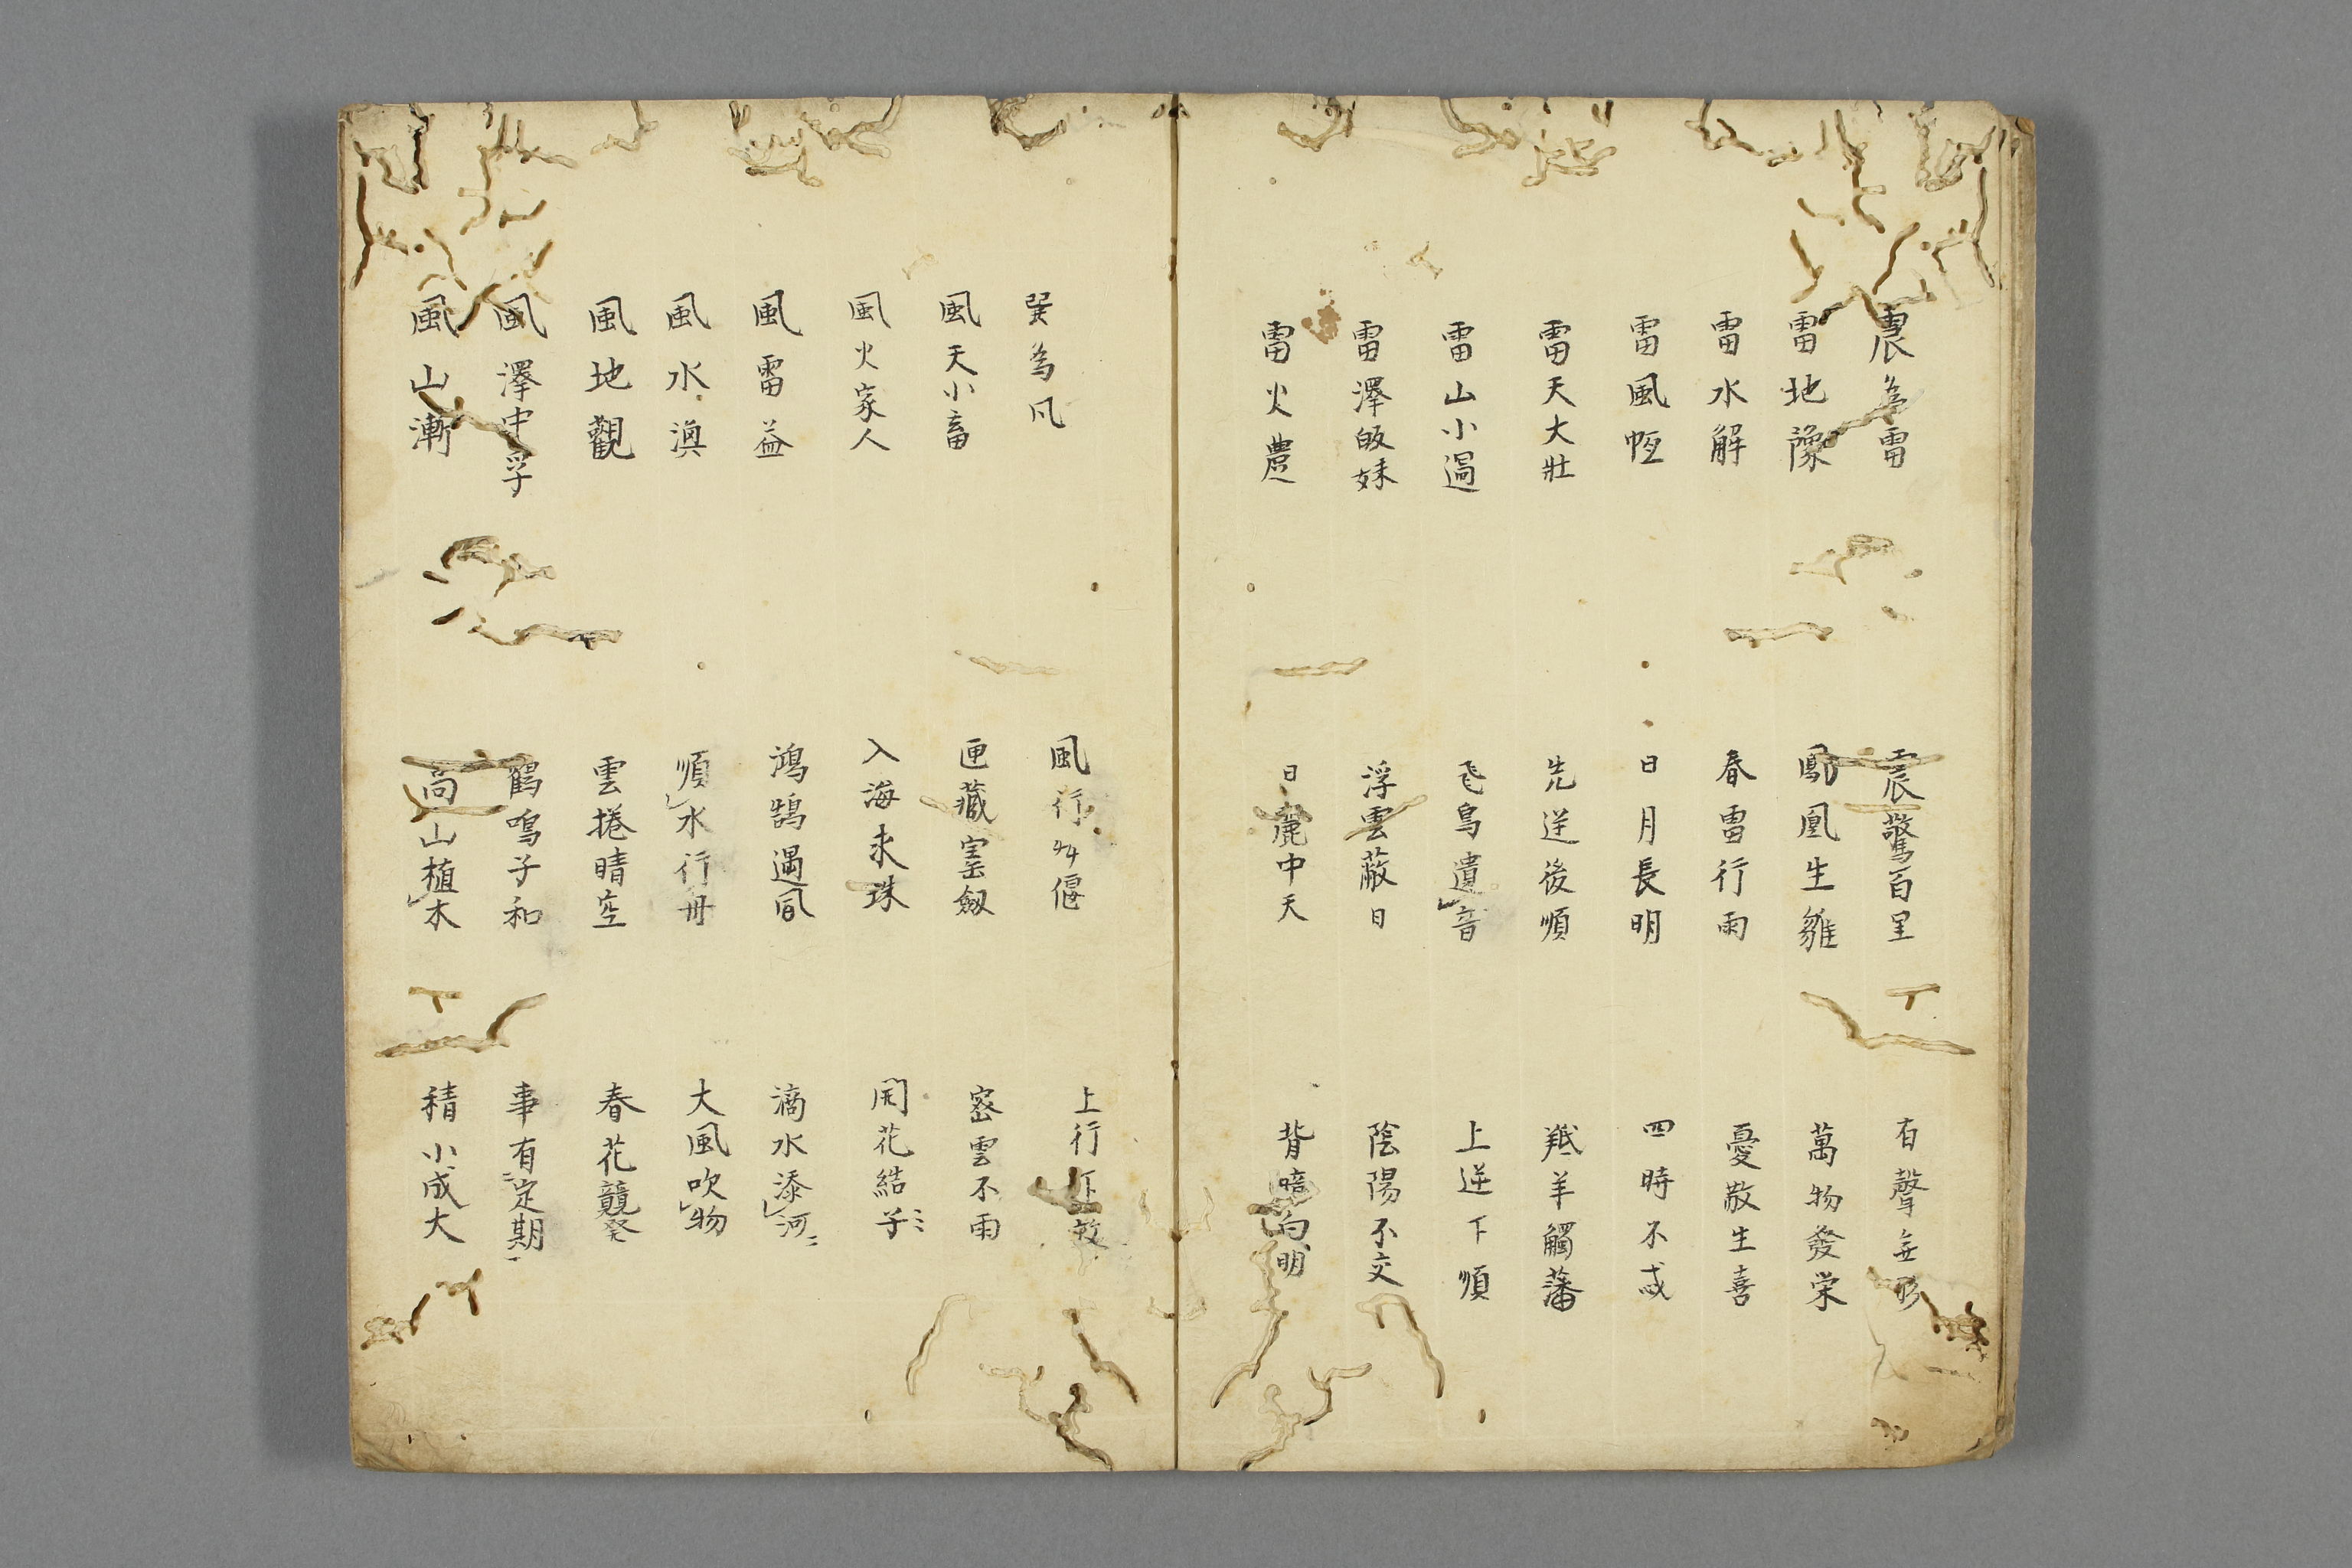 震為雷 震驚百里 有聲無形
雷地豫 鳳凰生雛 萬物發栄
雷水解 春雷行雨 憂散生喜
雷風恆 日月長明 四時不忒
雷天大壯 先逆後順 羝羊觸藩
雷山小過 飛鳥遺音 上逆下順
雷澤皈妹 浮雲蔽日 陰陽不交
雷火豊 日麗中天 背暗向明
巽為凨 風行草偃 上行下效
風天小畜 匣藏宝劔 密雲不雨
風火家人 入海求珠 開花結子
風雷益 鴻鵠遇風 滴水添河
風水渙 順水行舟 大風吹物
風地觀 雲捲晴空 春花競發
風澤中孚 鶴鳴子和 事有定期
風山漸 高山植木 積小成大